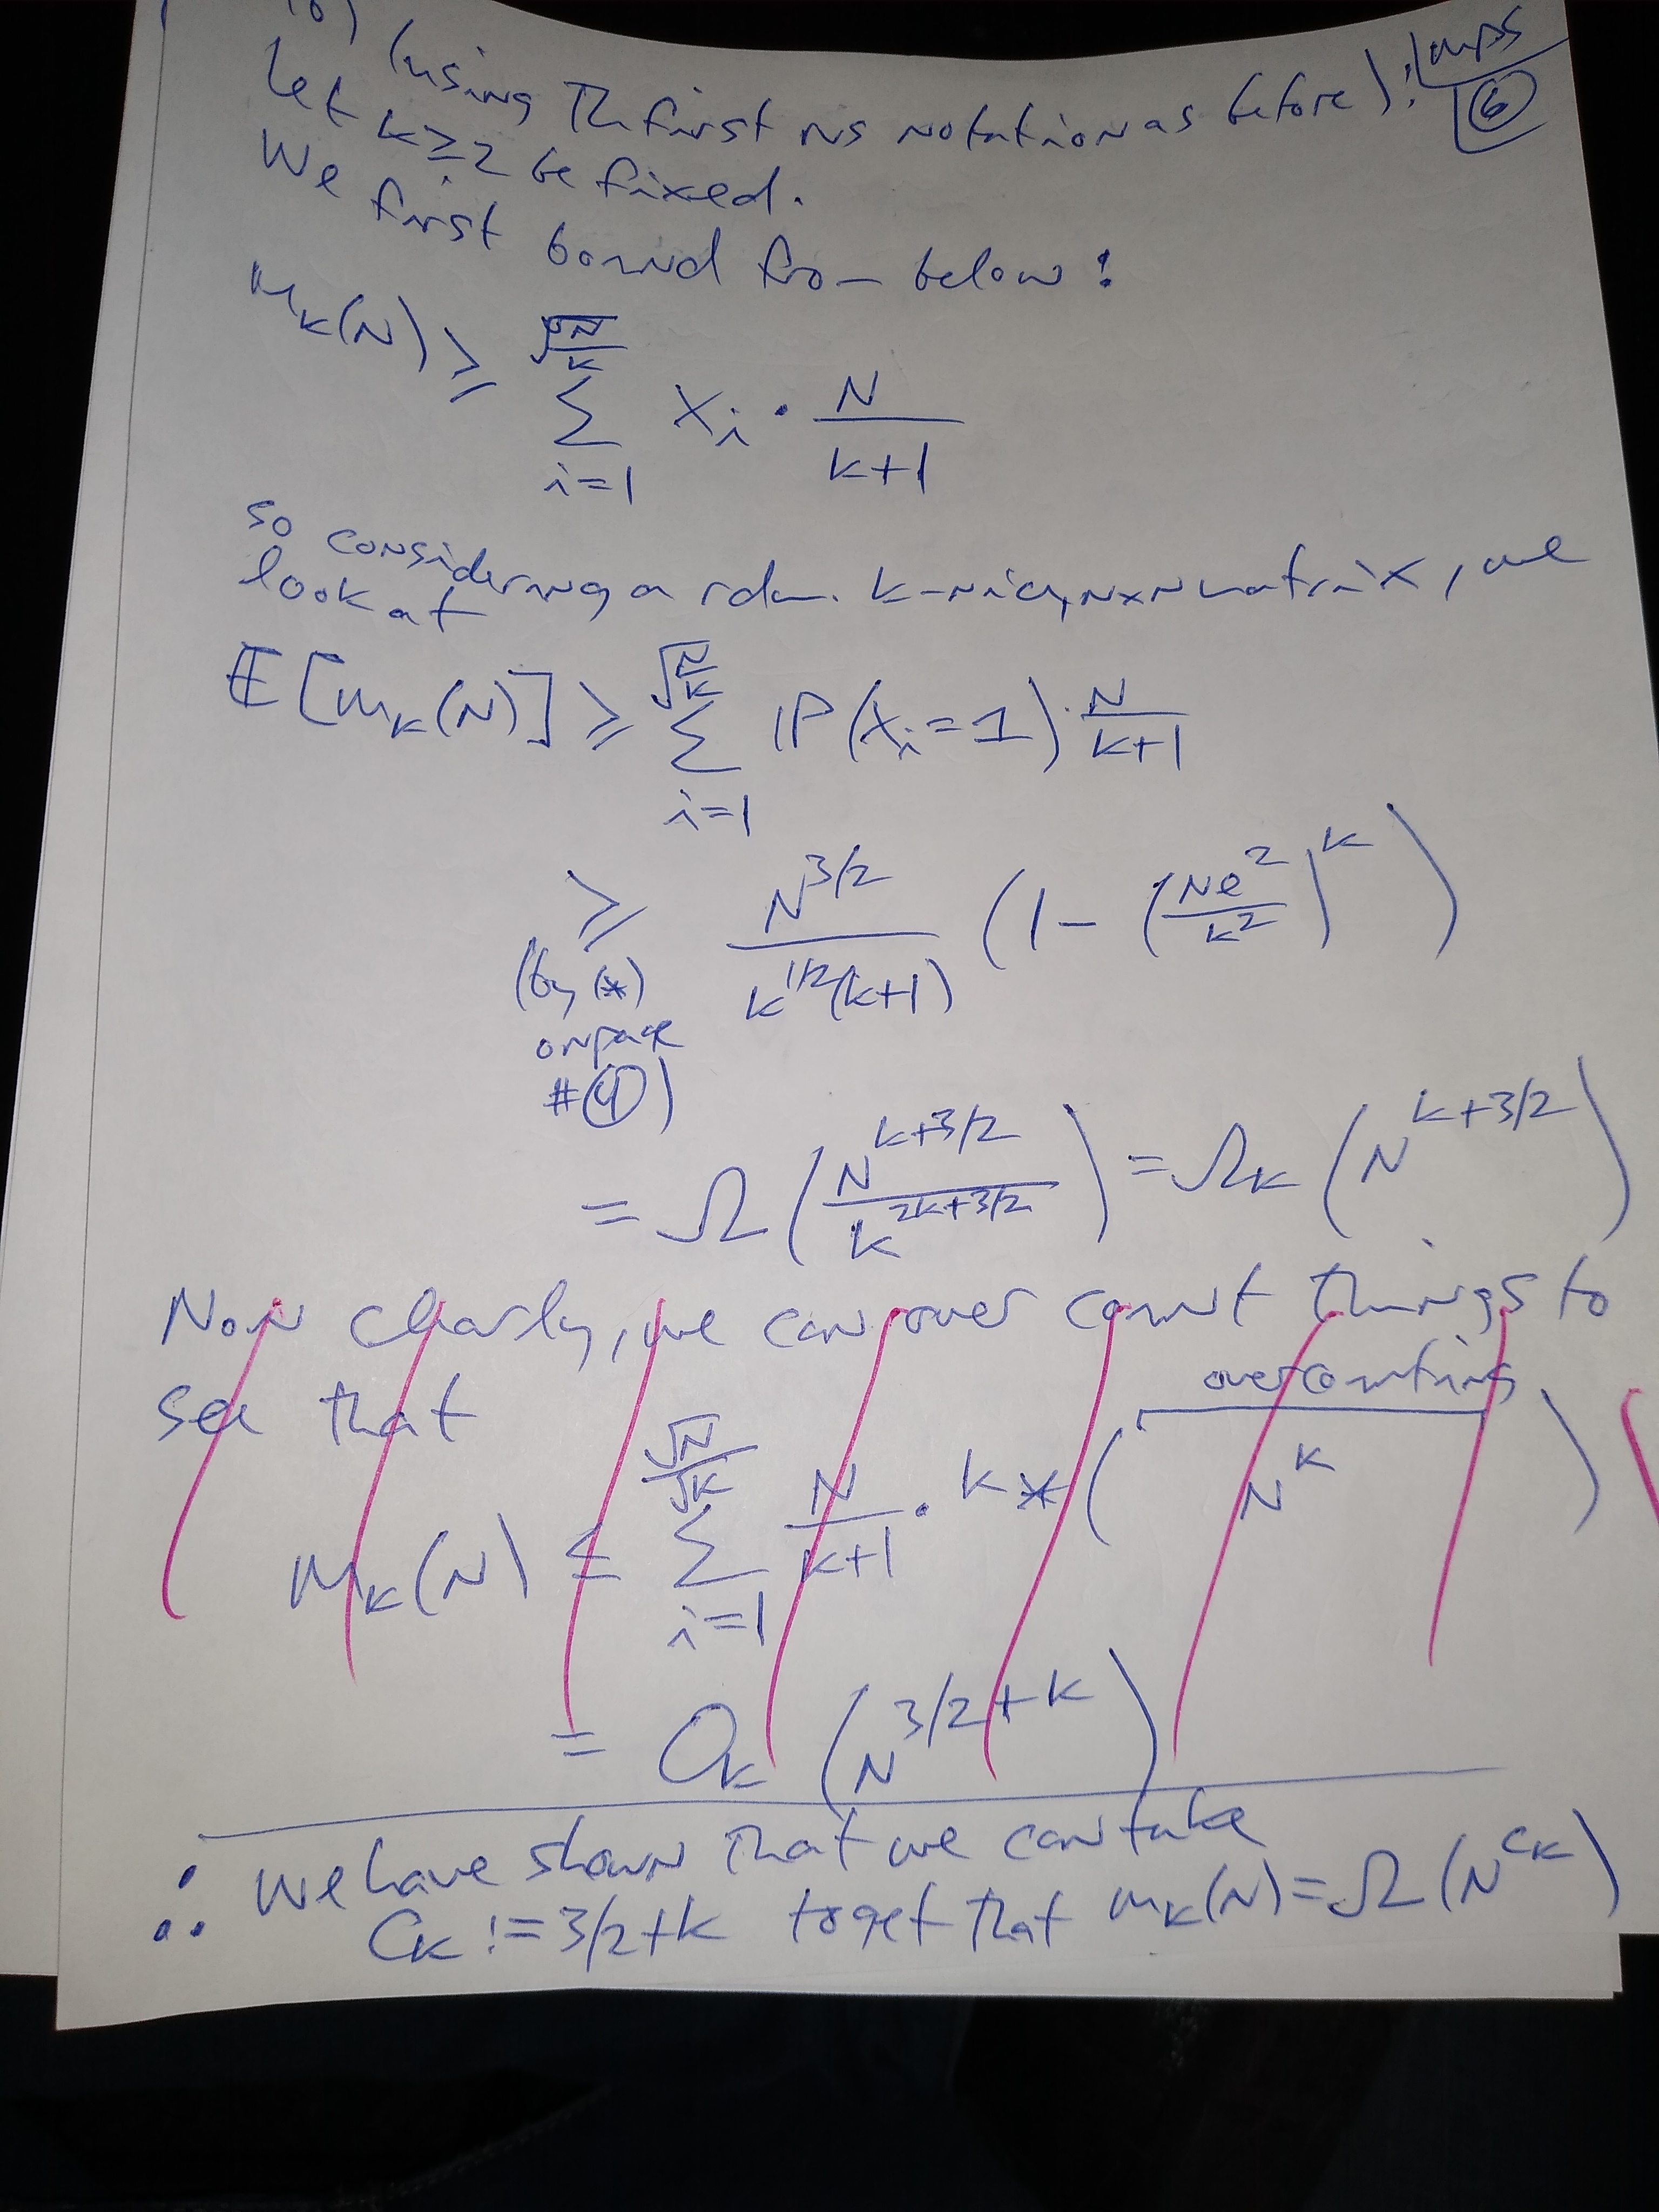 b) (using the first ns notation as before): MPS
6
Let k ≥ 2 be fixed.
We first bound from below:
M_k(N) ≥ \sum_{i=1}^{\sqrt{\frac{N}{k}}} X_i · \frac{N}{k+1}
so considering a rdm. k-nicy, N×N matrix, we
look at
𝔼[M_k(N)] ≥ \sum_{i=1}^{\sqrt{\frac{N}{k}}} ℙ(X_i = 1) · \frac{N}{k+1}
≥ \frac{N^{3/2}}{k^{1/2}(k+1)} (1 - (\frac{Ne^2}{k^2})^k)
(by (*)
on page
#④)
= Ω(\frac{N^{k+3/2}}{k^{2k+3/2}}) = Ω_k(N^{k+3/2})
Now clearly, we can over count things to
see that
overcounting
M_k(N) ≤ \sum_{i=1}^{\frac{\sqrt{N}}{\sqrt{k}}} \frac{N}{k+1} · k * (N^k)
= O_k(N^{3/2+k})
∴ we have shown that we can take
C_k := 3/2+k to get that M_k(N) = Ω(N^{C_k})